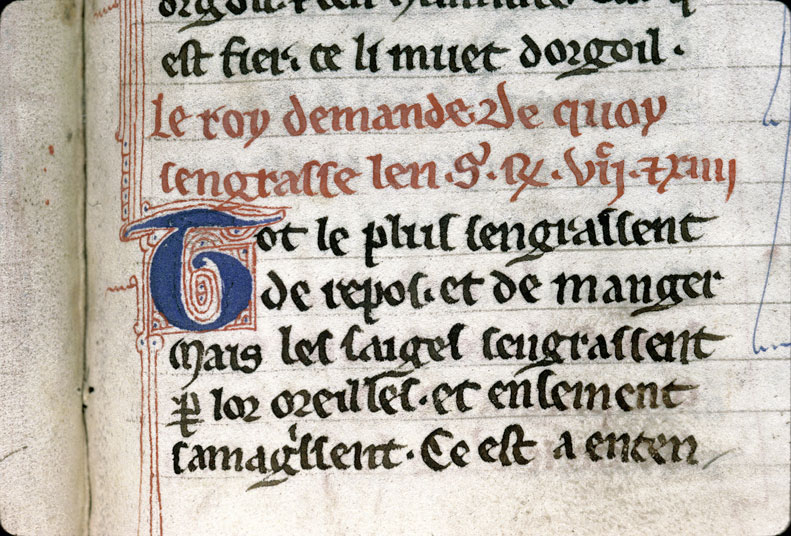 est fier. ce li muet dorgoil.
Le roy demande. De quoy
sengrasse len. S'. R. Vc. ij. et xiiij
Tot le plus sengrassent
de repos. et de manger
Mais les saiges sengrassent
ꝑ lor oreilles. et ensement
samagissent. Ce est a enten